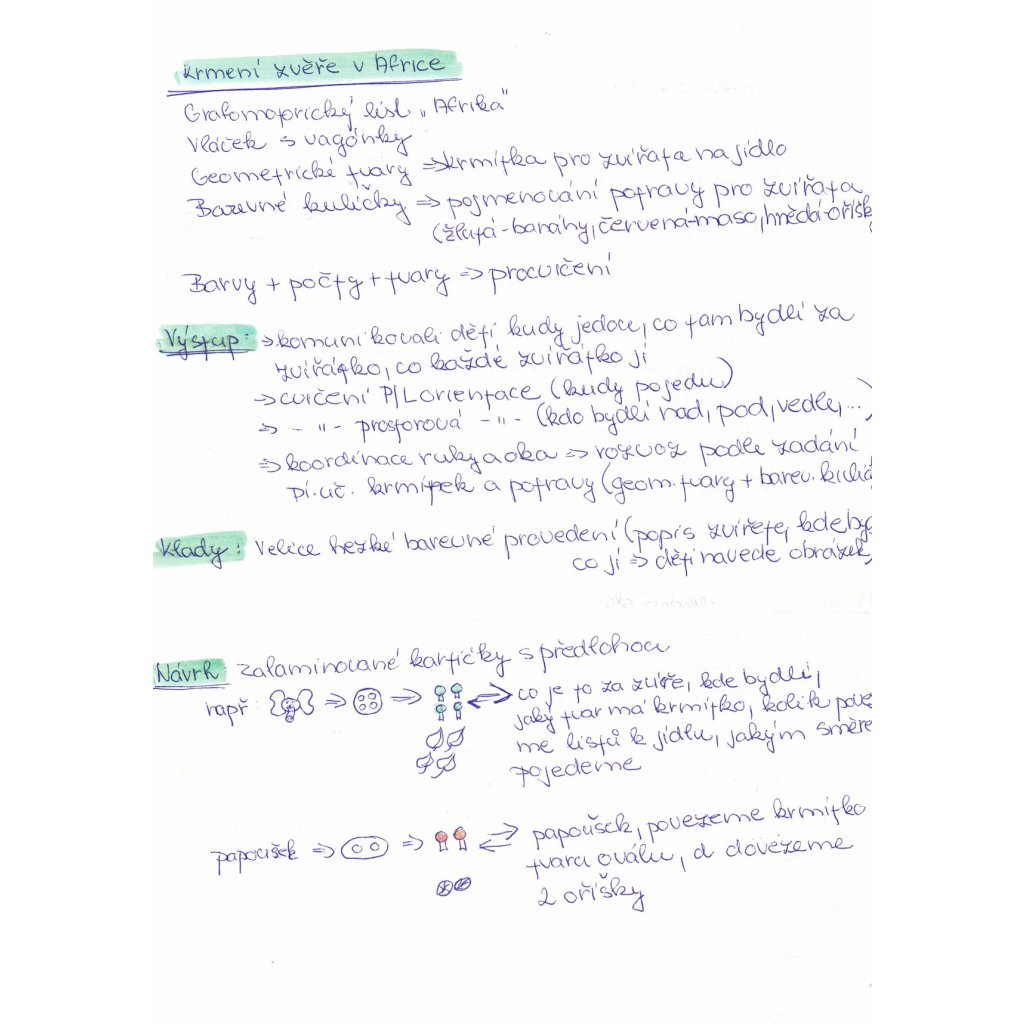 Krmení zvěře v Africe
Grafomotorický list „Afrika"
Vláček s vagónky
Geometrické tvary => krmítka pro zvířata na jídlo
Barevné kuličky => pojmenování potravy pro zvířata
(žlutá-banány, červená-maso, hnědá-oříšk
Barvy + počty + tvary => procvičení
Výstup: => komunikovali děti kudy jedou, co tam bydlí za
zvířátko, co každé zvířátko jí
=> cvičení P/L orientace (kudy pojedu)
=> - " - prostorová - " - (kdo bydlí nad, pod, vedle, ...)
=> koordinace ruky a oka => rozvoz podle zadání
pí. uč. krmítek a potravy (geom. tvary + barev. kulič
Klady: Velice hezké barevné provedení (popis zvířete, kde by
co jí => děti navede obrázek)
Návrh zalaminované kartičky s předlohou
např: => => <=> co je to za zvíře, kde bydlí,
jaký tvar má krmítko, kolik pove
me listů k jídlu, jakým směre
pojedeme
papoušek => => <=> papoušek, povezeme krmítko
tvaru oválu, a dovezeme
2 oříšky